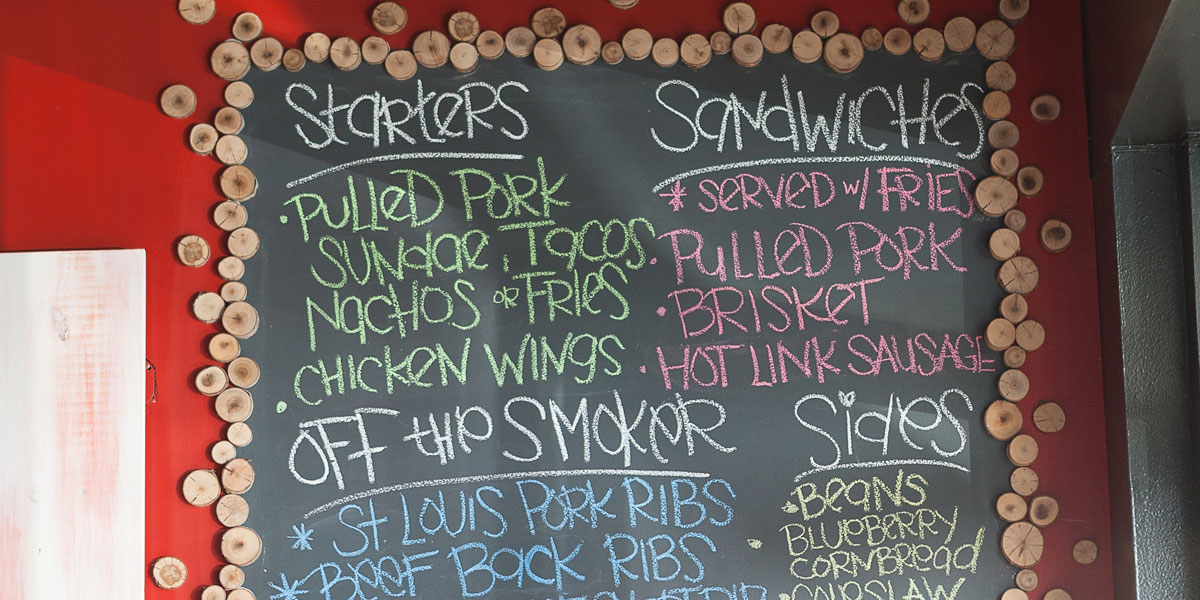 Starters
• Pulled Pork
Sundae, Tacos
Nachos or Fries
• Chicken Wings
Sandwiches
* Served w/ Fries
• Pulled Pork
• Brisket
• Hot Link Sausage
Off the Smoker
* St Louis Pork Ribs
* Beef Back Ribs
Sides
• Beans
• Blueberry
Cornbread
• Coleslaw